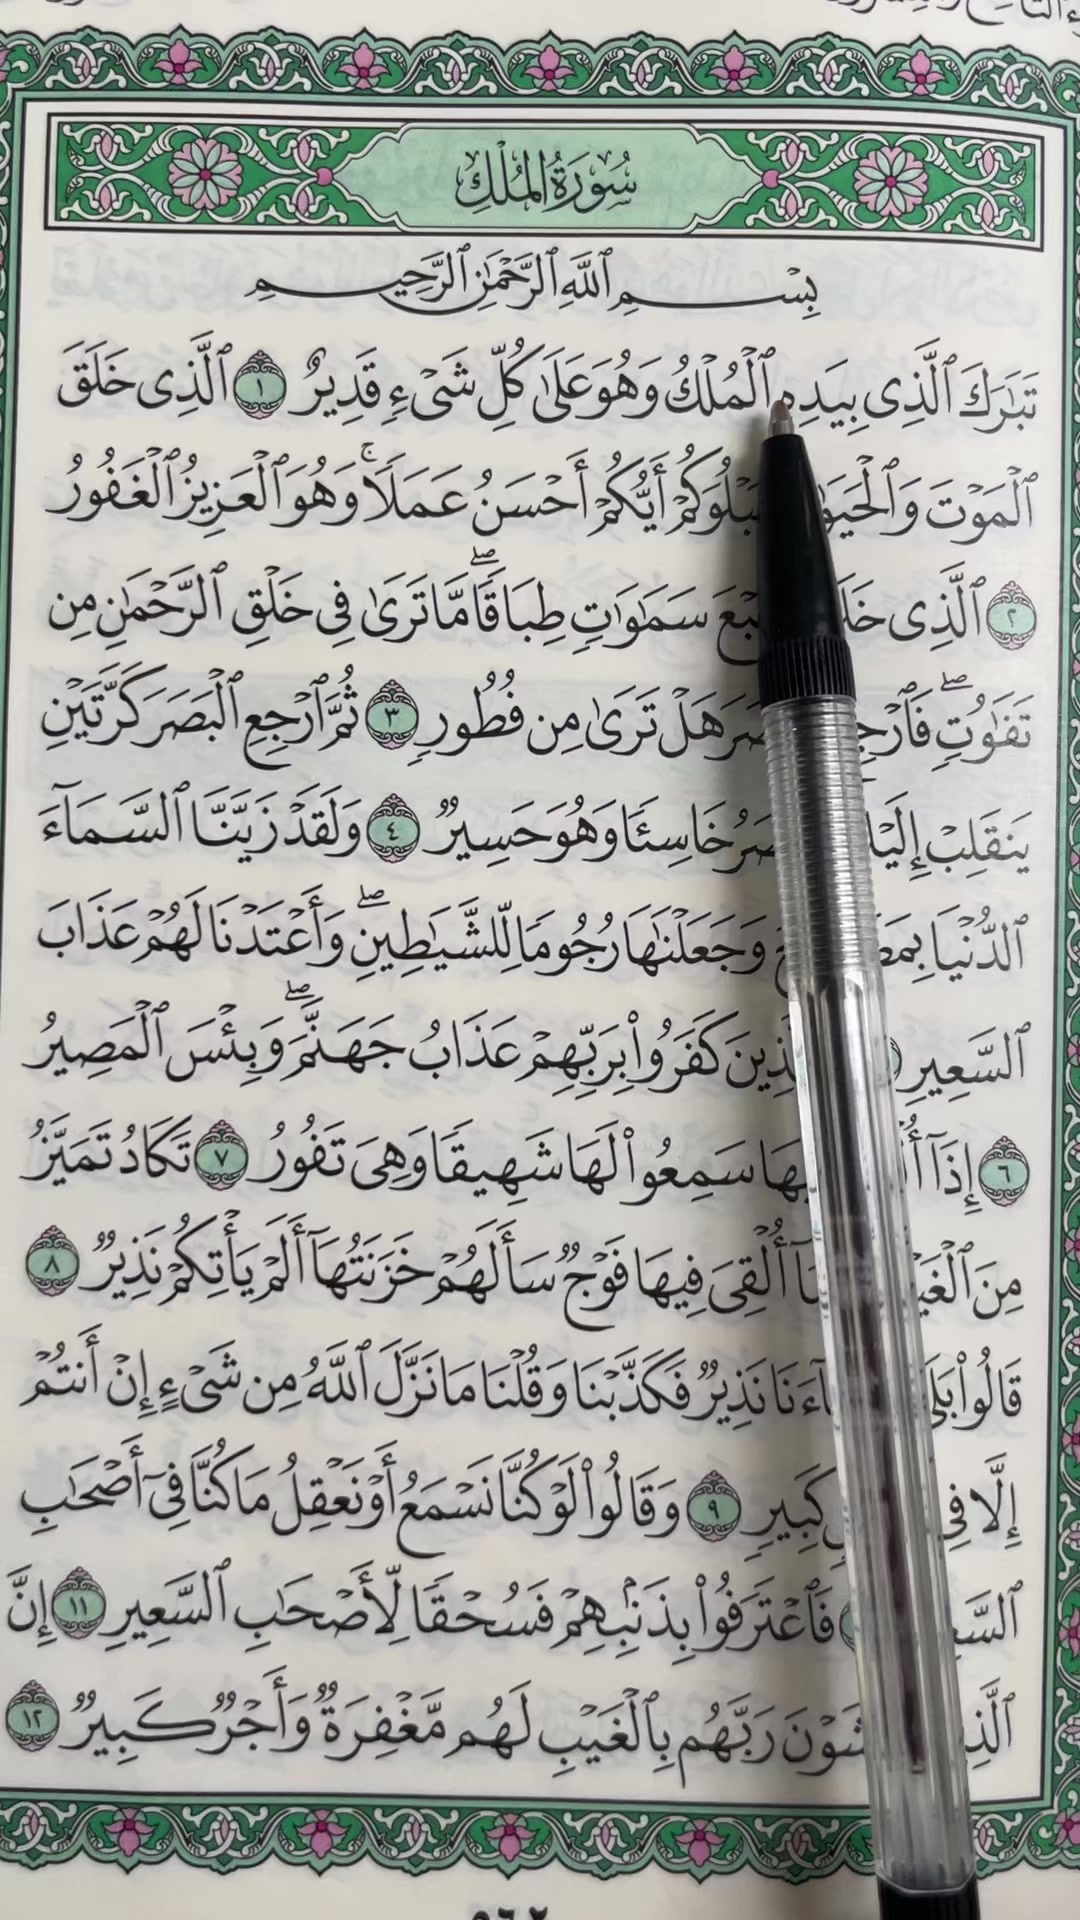 سُورَةُ الْمُلْكِ
بِسْمِ ٱللَّهِ ٱلرَّحْمَٰنِ ٱلرَّحِيمِ
تَبَٰرَكَ ٱلَّذِى بِيَدِهِ ٱلْمُلْكُ وَهُوَ عَلَىٰ كُلِّ شَىْءٍ قَدِيرٌ ١ ٱلَّذِى خَلَقَ
ٱلْمَوْتَ وَٱلْحَيَوٰةَ لِيَبْلُوَكُمْ أَيُّكُمْ أَحْسَنُ عَمَلًا ۚ وَهُوَ ٱلْعَزِيزُ ٱلْغَفُورُ
٢ ٱلَّذِى سَمَٰوَٰتٍ طِبَاقًا ۖ مَّا تَرَىٰ فِى خَلْقِ ٱلرَّحْمَٰنِ مِن
تَفَٰوُتٍ ۖ هَلْ تَرَىٰ مِن فُطُورٍ ٣ ثُمَّ ٱرْجِعِ ٱلْبَصَرَ كَرَّتَيْنِ
يَنقَلِبْ خَاسِئًا وَهُوَ حَسِيرٌ ٤ وَلَقَدْ زَيَّنَّا ٱلسَّمَآءَ
ٱلدُّنْيَا وَجَعَلْنَٰهَا رُجُومًا لِّلشَّيَٰطِينِ ۖ وَأَعْتَدْنَا لَهُمْ عَذَابَ
ٱلسَّعِيرِ كَفَرُوا۟ بِرَبِّهِمْ عَذَابُ جَهَنَّمَ ۖ وَبِئْسَ ٱلْمَصِيرُ
٦ إِذَآ سَمِعُوا۟ لَهَا شَهِيقًا وَهِىَ تَفُورُ ٧ تَكَادُ تَمَيَّزُ
مِنَ أُلْقِىَ فِيهَا فَوْجٌ سَأَلَهُمْ خَزَنَتُهَآ أَلَمْ يَأْتِكُمْ نَذِيرٌ ٨
قَالُوا۟ نَذِيرٌ فَكَذَّبْنَا وَقُلْنَا مَا نَزَّلَ ٱللَّهُ مِن شَىْءٍ إِنْ أَنتُمْ
إِلَّا فِى كَبِيرٍ ٩ وَقَالُوا۟ لَوْ كُنَّا نَسْمَعُ أَوْ نَعْقِلُ مَا كُنَّا فِىٓ أَصْحَٰبِ
فَٱعْتَرَفُوا۟ بِذَنۢبِهِمْ فَسُحْقًا لِّأَصْحَٰبِ ٱلسَّعِيرِ ١١ إِنَّ
رَبَّهُم بِٱلْغَيْبِ لَهُم مَّغْفِرَةٌ وَأَجْرٌ كَبِيرٌ ١٢